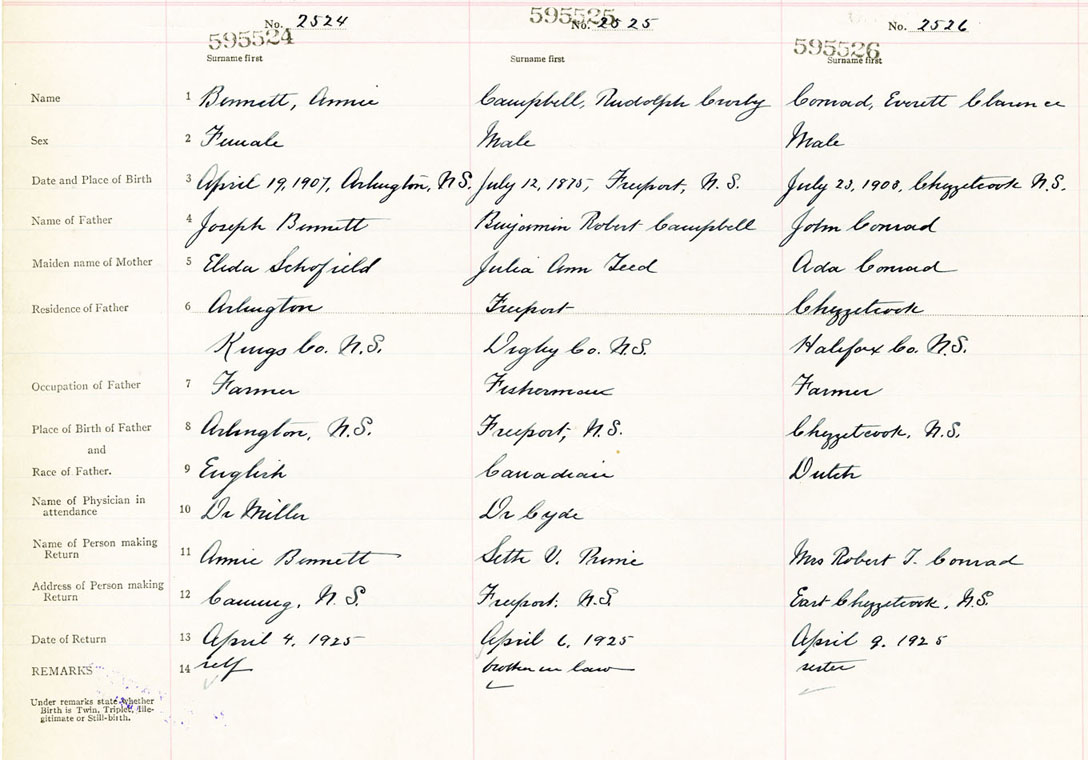 No. 2524 No. 2525 No. 2526
595524 595525 595526
Surname first Surname first Surname first
Name 1 Bennett, Annie Campbell, Rudolph Crosby Conrad, Everett Clarence
Sex 2 Female Male Male
Date and Place of Birth 3 April 19, 1907, Arlington, N.S. July 12, 1875, Freeport, N.S. July 23, 1900, Chezzetcook N.S.
Name of Father 4 Joseph Bennett Benjamin Robert Campbell John Conrad
Maiden name of Mother 5 Elida Schofield Julia Ann Teed Ada Conrad
Residence of Father 6 Arlington Freeport Chezzetcook
Kings Co. N.S. Digby Co. N.S. Halifax Co. N.S.
Occupation of Father 7 Farmer Fisherman Farmer
Place of Birth of Father 8 Arlington, N.S. Freeport, N.S. Chezzetcook, N.S.
and
Race of Father. 9 English Canadian Dutch
Name of Physician in
attendance 10 Dr Miller Dr
Name of Person making
Return 11 Annie Bennett Seth V. Prime Mrs Robert T. Conrad
Address of Person making
Return 12 Canning, N.S. Freeport, N.S. East Chezzetcook, N.S.
Date of Return 13 April 4, 1925 April 6, 1925 April 9, 1925
REMARKS 14 self brother in law sister
Under remarks state whether
Birth is Twin, Triplet, Ille-
gitimate or Still-birth.